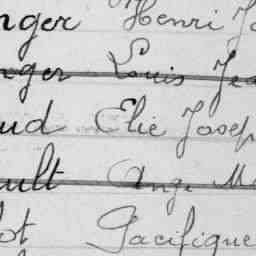 nger Henri Jo
nger Louis Jea
ud Elie Josep
ult Ange M
ot Pacifique